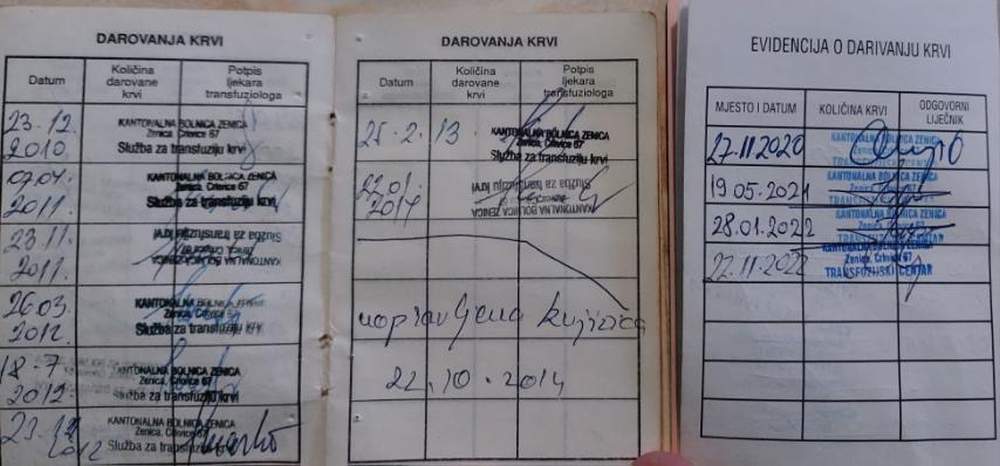 DAROVANJA KRVI
Datum Količina darovane krvi Potpis ljekara transfuziologa
23.12. 2010.
KANTONALNA BOLNICA ZENICA
Zenica, Crkvice 67
Služba za transfuziju krvi
07.04. 2011.
KANTONALNA BOLNICA ZENICA
Zenica, Crkvice 67
Služba za transfuziju krvi
23.11. 2011.
KANTONALNA BOLNICA ZENICA
Zenica, Crkvice 67
Služba za transfuziju krvi
26.03. 2012.
KANTONALNA BOLNICA ZENICA
Zenica, Crkvice 67
Služba za transfuziju krvi
18.7. 2012.
KANTONALNA BOLNICA ZENICA
Zenica, Crkvice 67
Služba za transfuziju krvi
2012
KANTONALNA BOLNICA ZENICA
Zenica, Crkvice 67
Služba za transfuziju krvi
DAROVANJA KRVI
Datum Količina darovane krvi Potpis ljekara transfuziologa
25.2.13
KANTONALNA BOLNICA ZENICA
Zenica, Crkvice 67
Služba za transfuziju krvi
22.01. 2014
KANTONALNA BOLNICA ZENICA
Služba za transfuziju krvi
knjižica
22.10.2014
EVIDENCIJA O DARIVANJU KRVI
MJESTO I DATUM KOLIČINA KRVI ODGOVORNI LIJEČNIK
27.11.2020
KANTONALNA BOLNICA ZENICA
TRANSFUZIJSKI CENTAR
19.05.2021
KANTONALNA BOLNICA ZENICA
TRANSFUZIJSKI CENTAR
28.01.2022
KANTONALNA BOLNICA ZENICA
TRANSFUZIJSKI CENTAR
22.11.2022
KANTONALNA BOLNICA ZENICA
Zenica, Crkvice 67
TRANSFUZIJSKI CENTAR